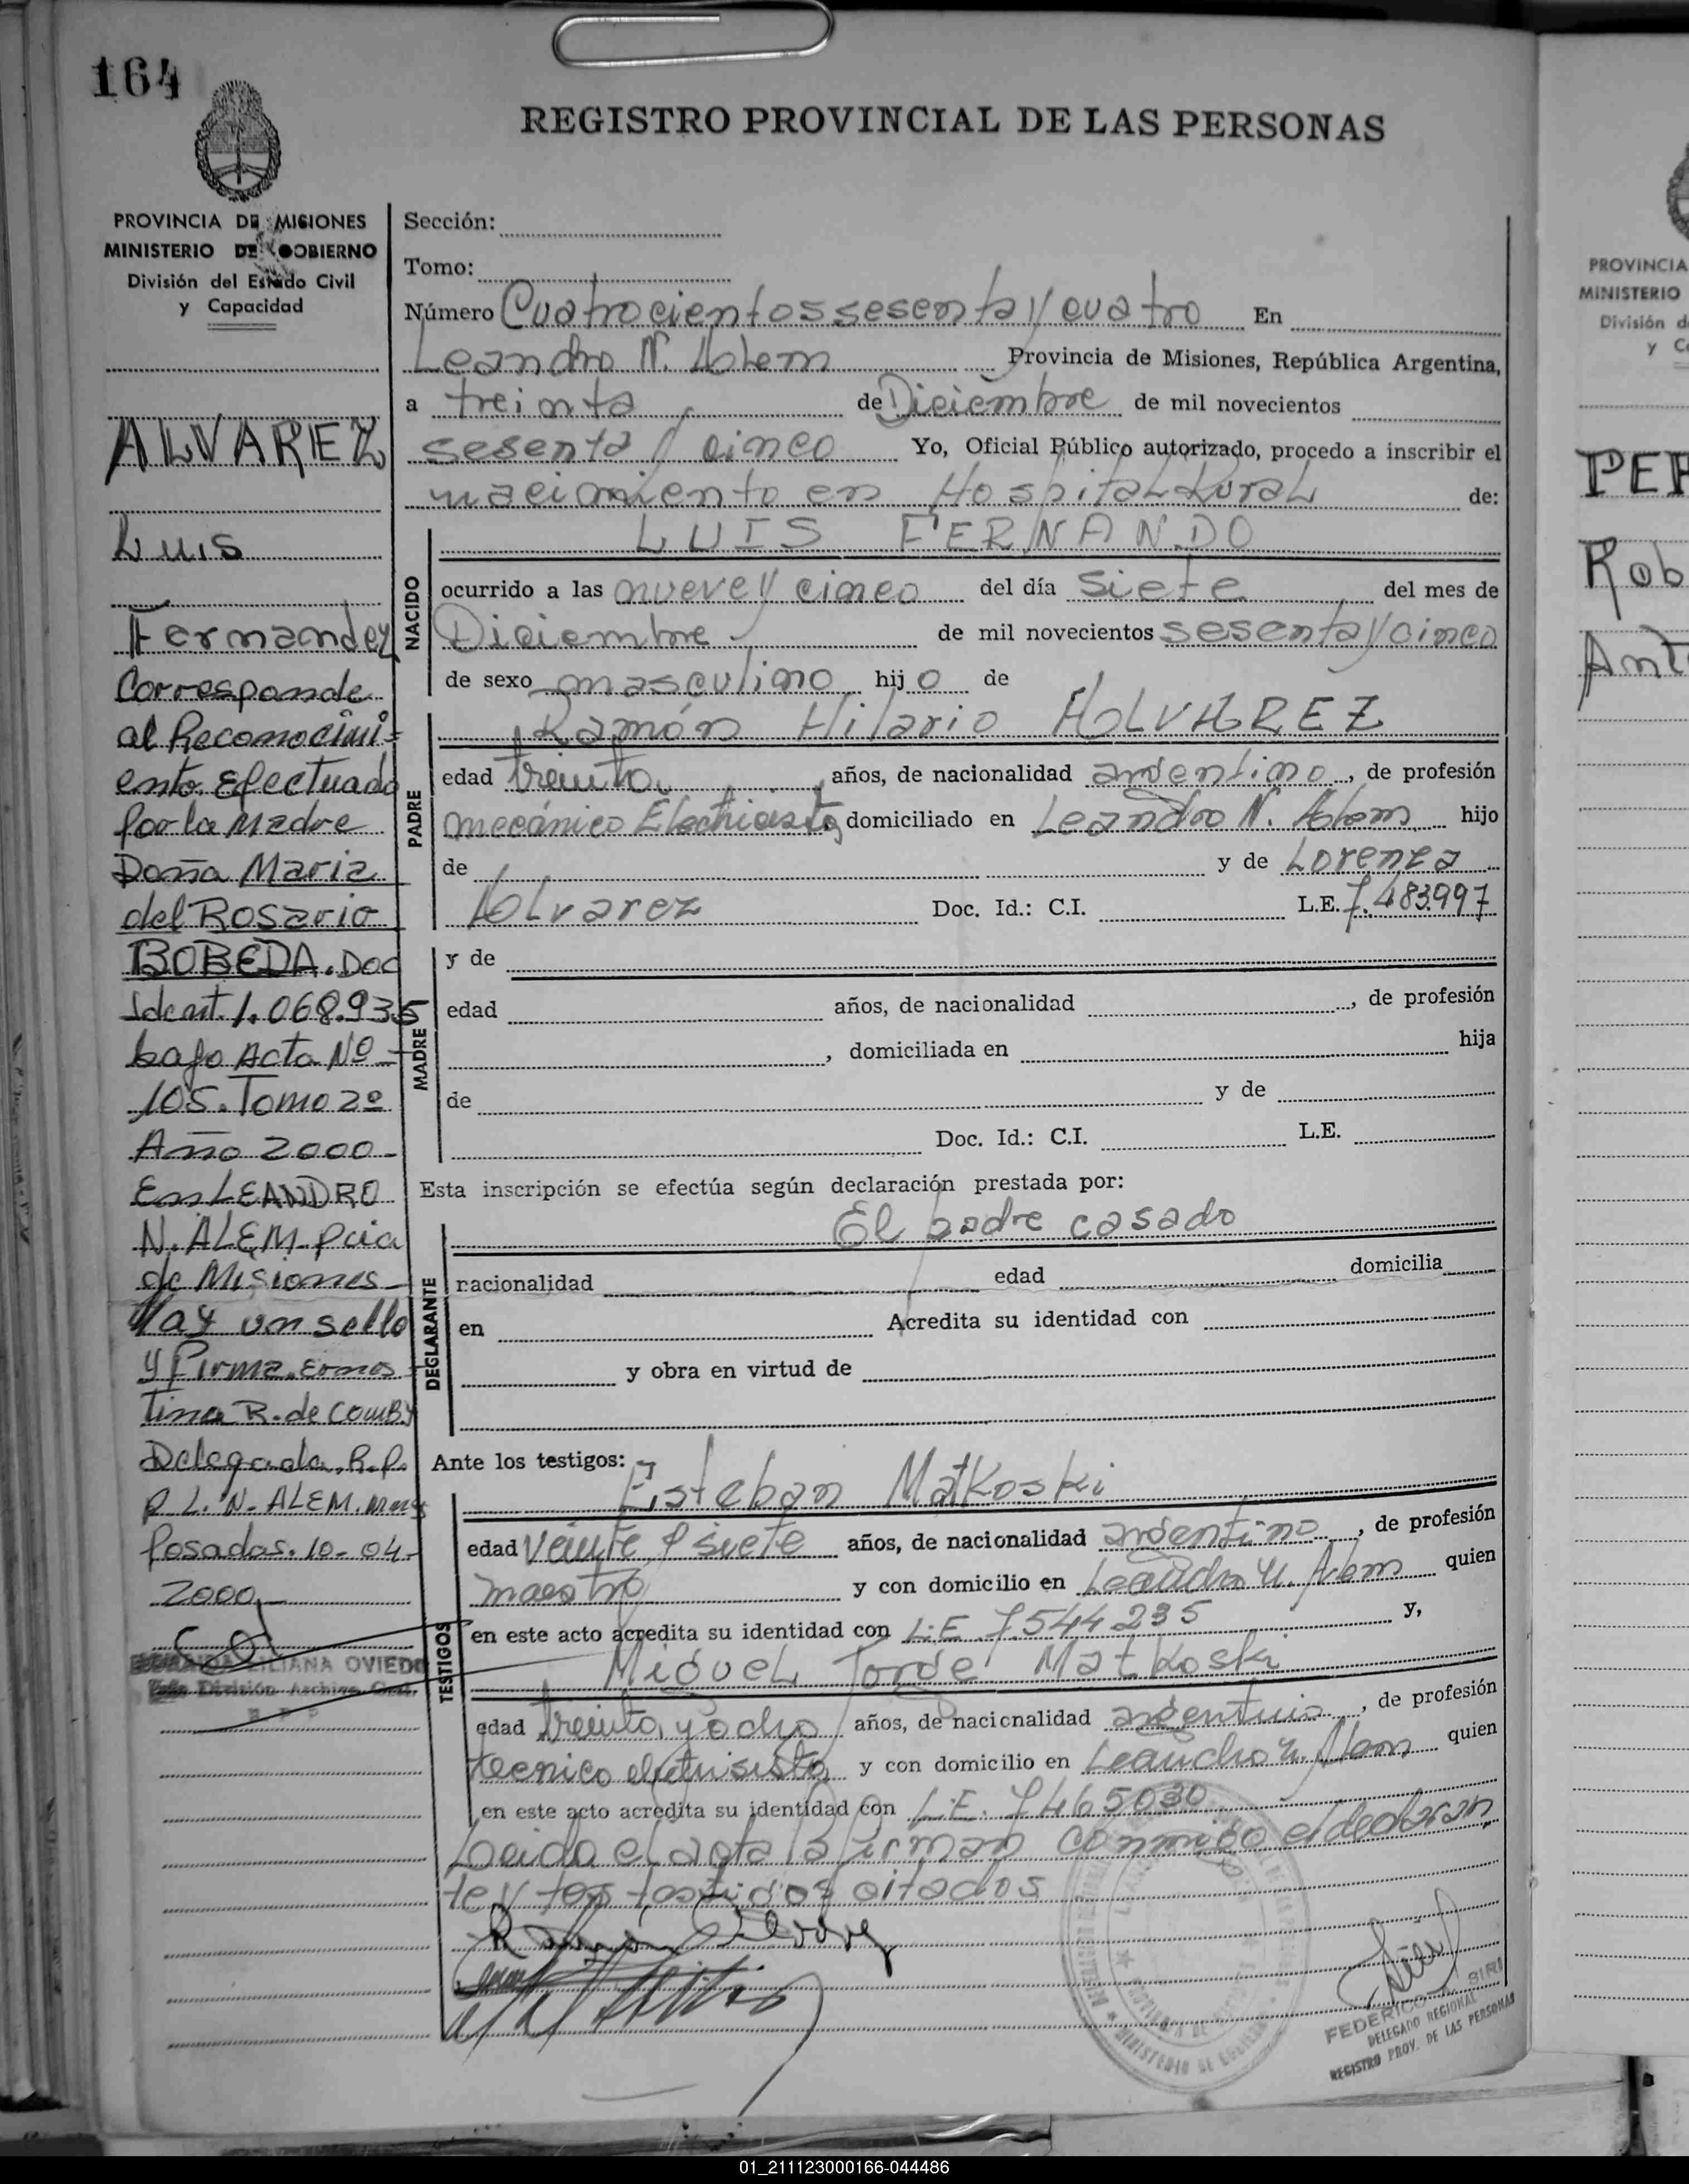 164
REGISTRO PROVINCIAL DE LAS PERSONAS
PROVINCIA DE MISIONES
MINISTERIO DE GOBIERNO
División del Estado Civil
y Capacidad
ALVAREZ
Luis
Fernandez
Corresponde
al Reconocimi=
ento Efectuado
por la Madre
Doña Maria
del Rosario
BOBEDA. Doc
Ident. 1.068.935
bajo Acta Nº
105. Tomo 2º
Año 2000-
En LEANDRO
N. ALEM. Pcia
de Misiones-
Hay un sello
y Firma. Ernes-
tina R. de COMBY
Delegada. R.P.
P L. N. ALEM. Mnes
Posadas. 10-04-
2000-
LILIANA OVIEDO
Jefe División Archivo Gral.
R P P
Sección:
Tomo:
Número Cuatrocientos sesenta y cuatro En
Leandro N. Alem Provincia de Misiones, República Argentina,
a treinta de Diciembre de mil novecientos
sesenta y cinco Yo, Oficial Público autorizado, procedo a inscribir el
nacimiento en Hospital Rural de:
LUIS FERNANDO
NACIDO
ocurrido a las nueve y cinco del día siete del mes de
Diciembre de mil novecientos sesenta y cinco
de sexo masculino hijo de
Ramón Hilario ALVAREZ
PADRE
edad treinta años, de nacionalidad argentino, de profesión
mecánico Electricista, domiciliado en Leandro N. Alem hijo
de y de Lorenza
Alvarez Doc. Id.: C.I. L.E. 7.483.997
MADRE
y de
edad años, de nacionalidad , de profesión
, domiciliada en hija
de y de
Doc. Id.: C.I. L.E.
Esta inscripción se efectúa según declaración prestada por:
El padre casado
DEGLARANTE
racionalidad edad domicilia
en Acredita su identidad con
y obra en virtud de
Ante los testigos:
Esteban Matkoski
TESTIGOS
edad veinte y siete años, de nacionalidad argentino, de profesión
maestro y con domicilio en Leandro N. Alem quien
en este acto acredita su identidad con L.E. 7.544.235 y,
Miguel Jorge Matkoski
edad treinta y ocho años, de nacicnalidad argentino, de profesión
tecnico electricista y con domicilio en Leandro N. Alem quien
en este acto acredita su identidad con L.E. 7465030
Leida el acta la firman conmigo el declaran
te y los testigos citados
Ramón Alvarez
FEDERICO SIRI
DELEGADO REGIONAL
REGISTRO PROV. DE LAS PERSONAS
PROVINCIA
MINISTERIO
División d
y C
PER
Rob
Ant
01_211123000166-044486